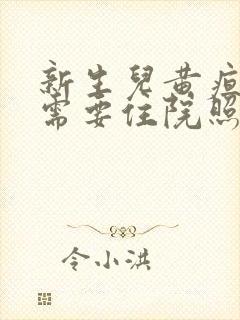 新生兒黃疸
需要住院照
令小洪